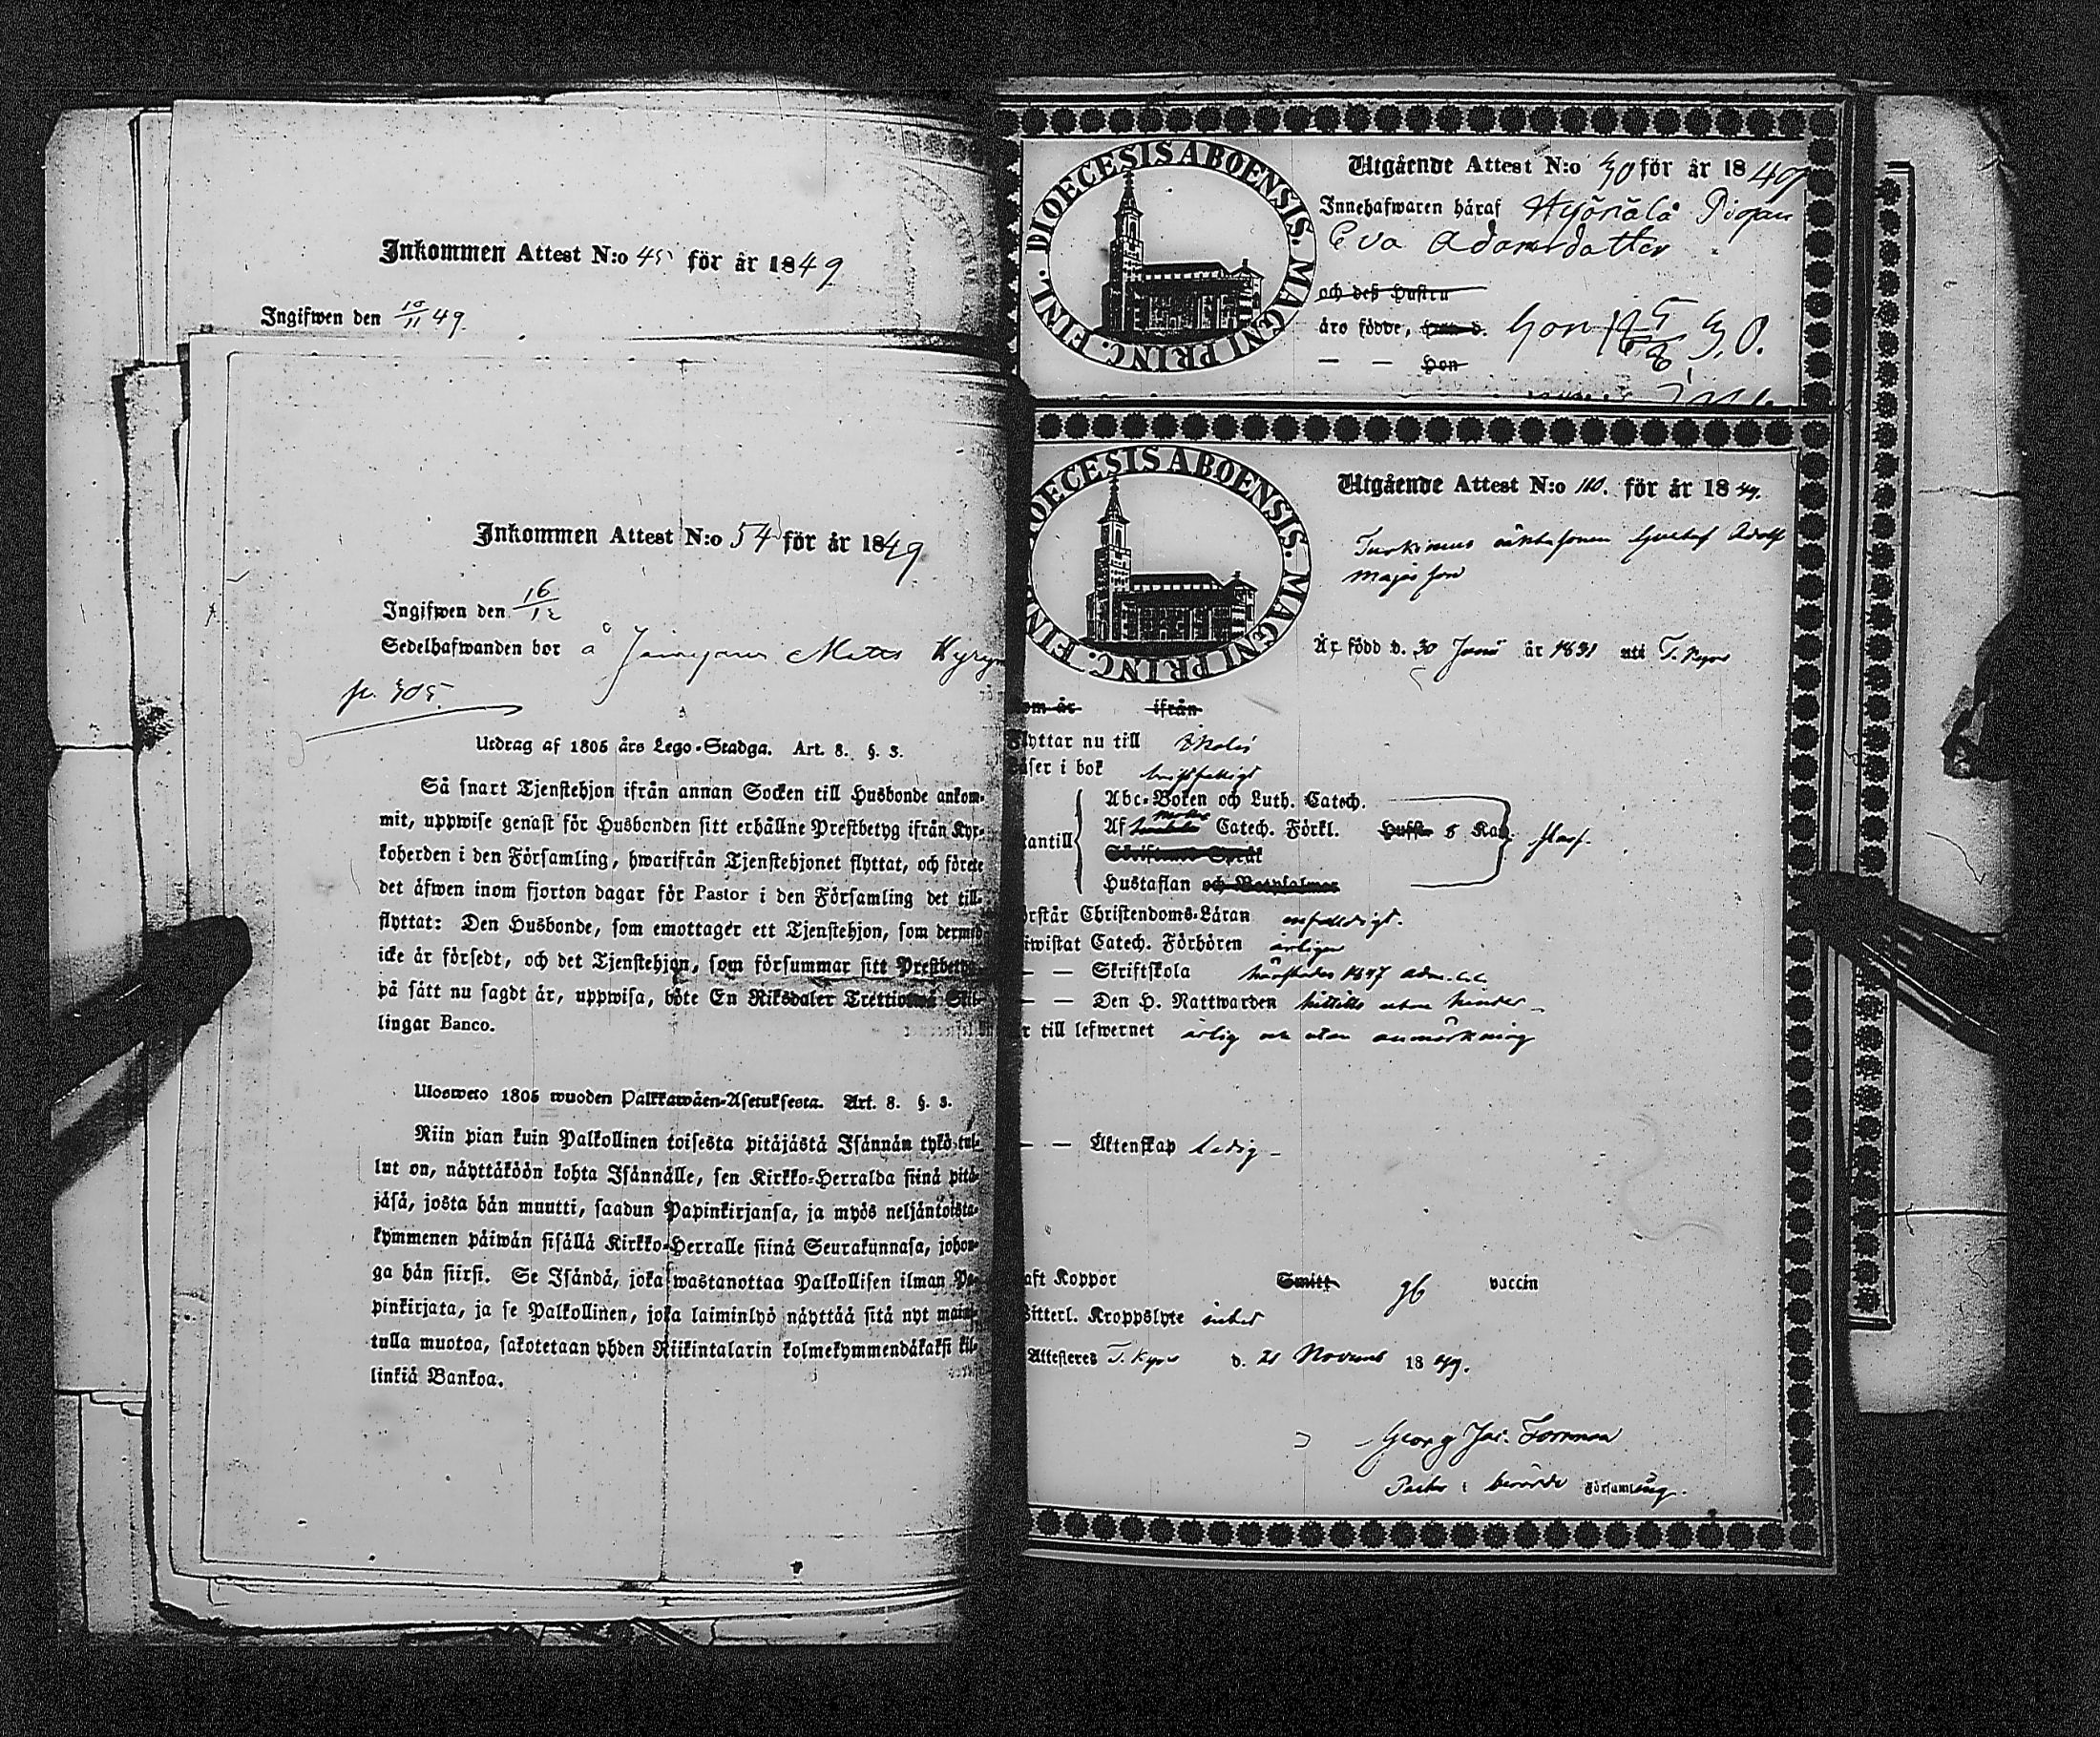 Inkommen Attest N:o 45 för år 1849
Ingifwen den 10/11 49.
Inkommen Attest N:o 54 för år 1849
Ingifwen den 16/12
Sedelhafwanden bor å Matts
p. 305
Utdrag af 1805 års Lego-Stadga. Art. 8. §. 3.
Så snart Tjenstehjon ifrån annan Socken till Husbonde ankom-
mit, uppwise genast för Husbonden sitt erhållne Prestbetyg ifrån Kyr-
koherden i den Församling, hwarifrån Tjenstehjonet flyttat, och förete
det äfwen inom fjorton dagar för Pastor i den Församling det till-
flyttat: Den Husbonde, som emottager ett Tjenstehjon, som dermed
icke är försedt, och det Tjenstehjon, som försummar sitt Prestbetyg,
på sätt nu sagdt är, uppwisa, böte En Riksdaler Trettiotwå Skil-
lingar Banco.
Ulosweto 1805 wuoden Palkkawäen-Asetuksesta. Art. 8. §. 3.
Niin pian kuin Palkollinen toisesta pitäjästä Isännän tykö tul-
lut on, näyttäköön kohta Isännälle, sen Kirkko-Herralda siinä pitä-
jäsä, josta hän muutti, saadun Papinkirjansa, ja myös neljäntoista-
kymmenen päiwän sisällä Kirkko-Herralle siinä Seurakunnasa, johon-
ga hän siirsi. Se Isändä, joka wastanottaa Palkollisen ilman Pa-
pinkirjata, ja se Palkollinen, joka laiminlyö näyttää sitä nyt mainit-
tulla muotoa, sakotetaan yhden Riikintalarin kolmekymmendäkaksi kil-
linkiä Bankoa.
DIOECESIS ABOENSIS. MAGNI PRINC. FINL.
Utgående Attest N:o 30 för år 1849
Innehafwaren häraf Pigan
Eva Adamsdotter
och dess Hustru
äro födde, Han d. Hon
— — Hon
DIOECESIS ABOENSIS. MAGNI PRINC. FIN
Utgående Attest N:o 110. för år 1849.
Gustaf Adolf
Majasson
Är född d. 30 Junii år 1831 uti T. Kyro
om år ifrån
flyttar nu till Ikalis
äser i bok
Abc-Boken och Luth. Catech.
Af Catech. Förkl. 5 Kap.
antill
Skriftenes Språk
Hustaflan och Botpsalmer
örstår Christendoms-Läran enfaldigt.
iwistat Catech. Förhören årligen
— — Skriftskola 1847
— — Den H. Nattwarden hittills utan hinder
r till lefwernet ärlig och utan anmärkning
— — Äktenskap Ledig
aft Koppor Smitt vaccin
Witterl. Kroppslyte intet
Attesteres T. Kyro d. 21 Novemb 1849.
Georg Jac. Forsman
Pastor i berörde Församling.